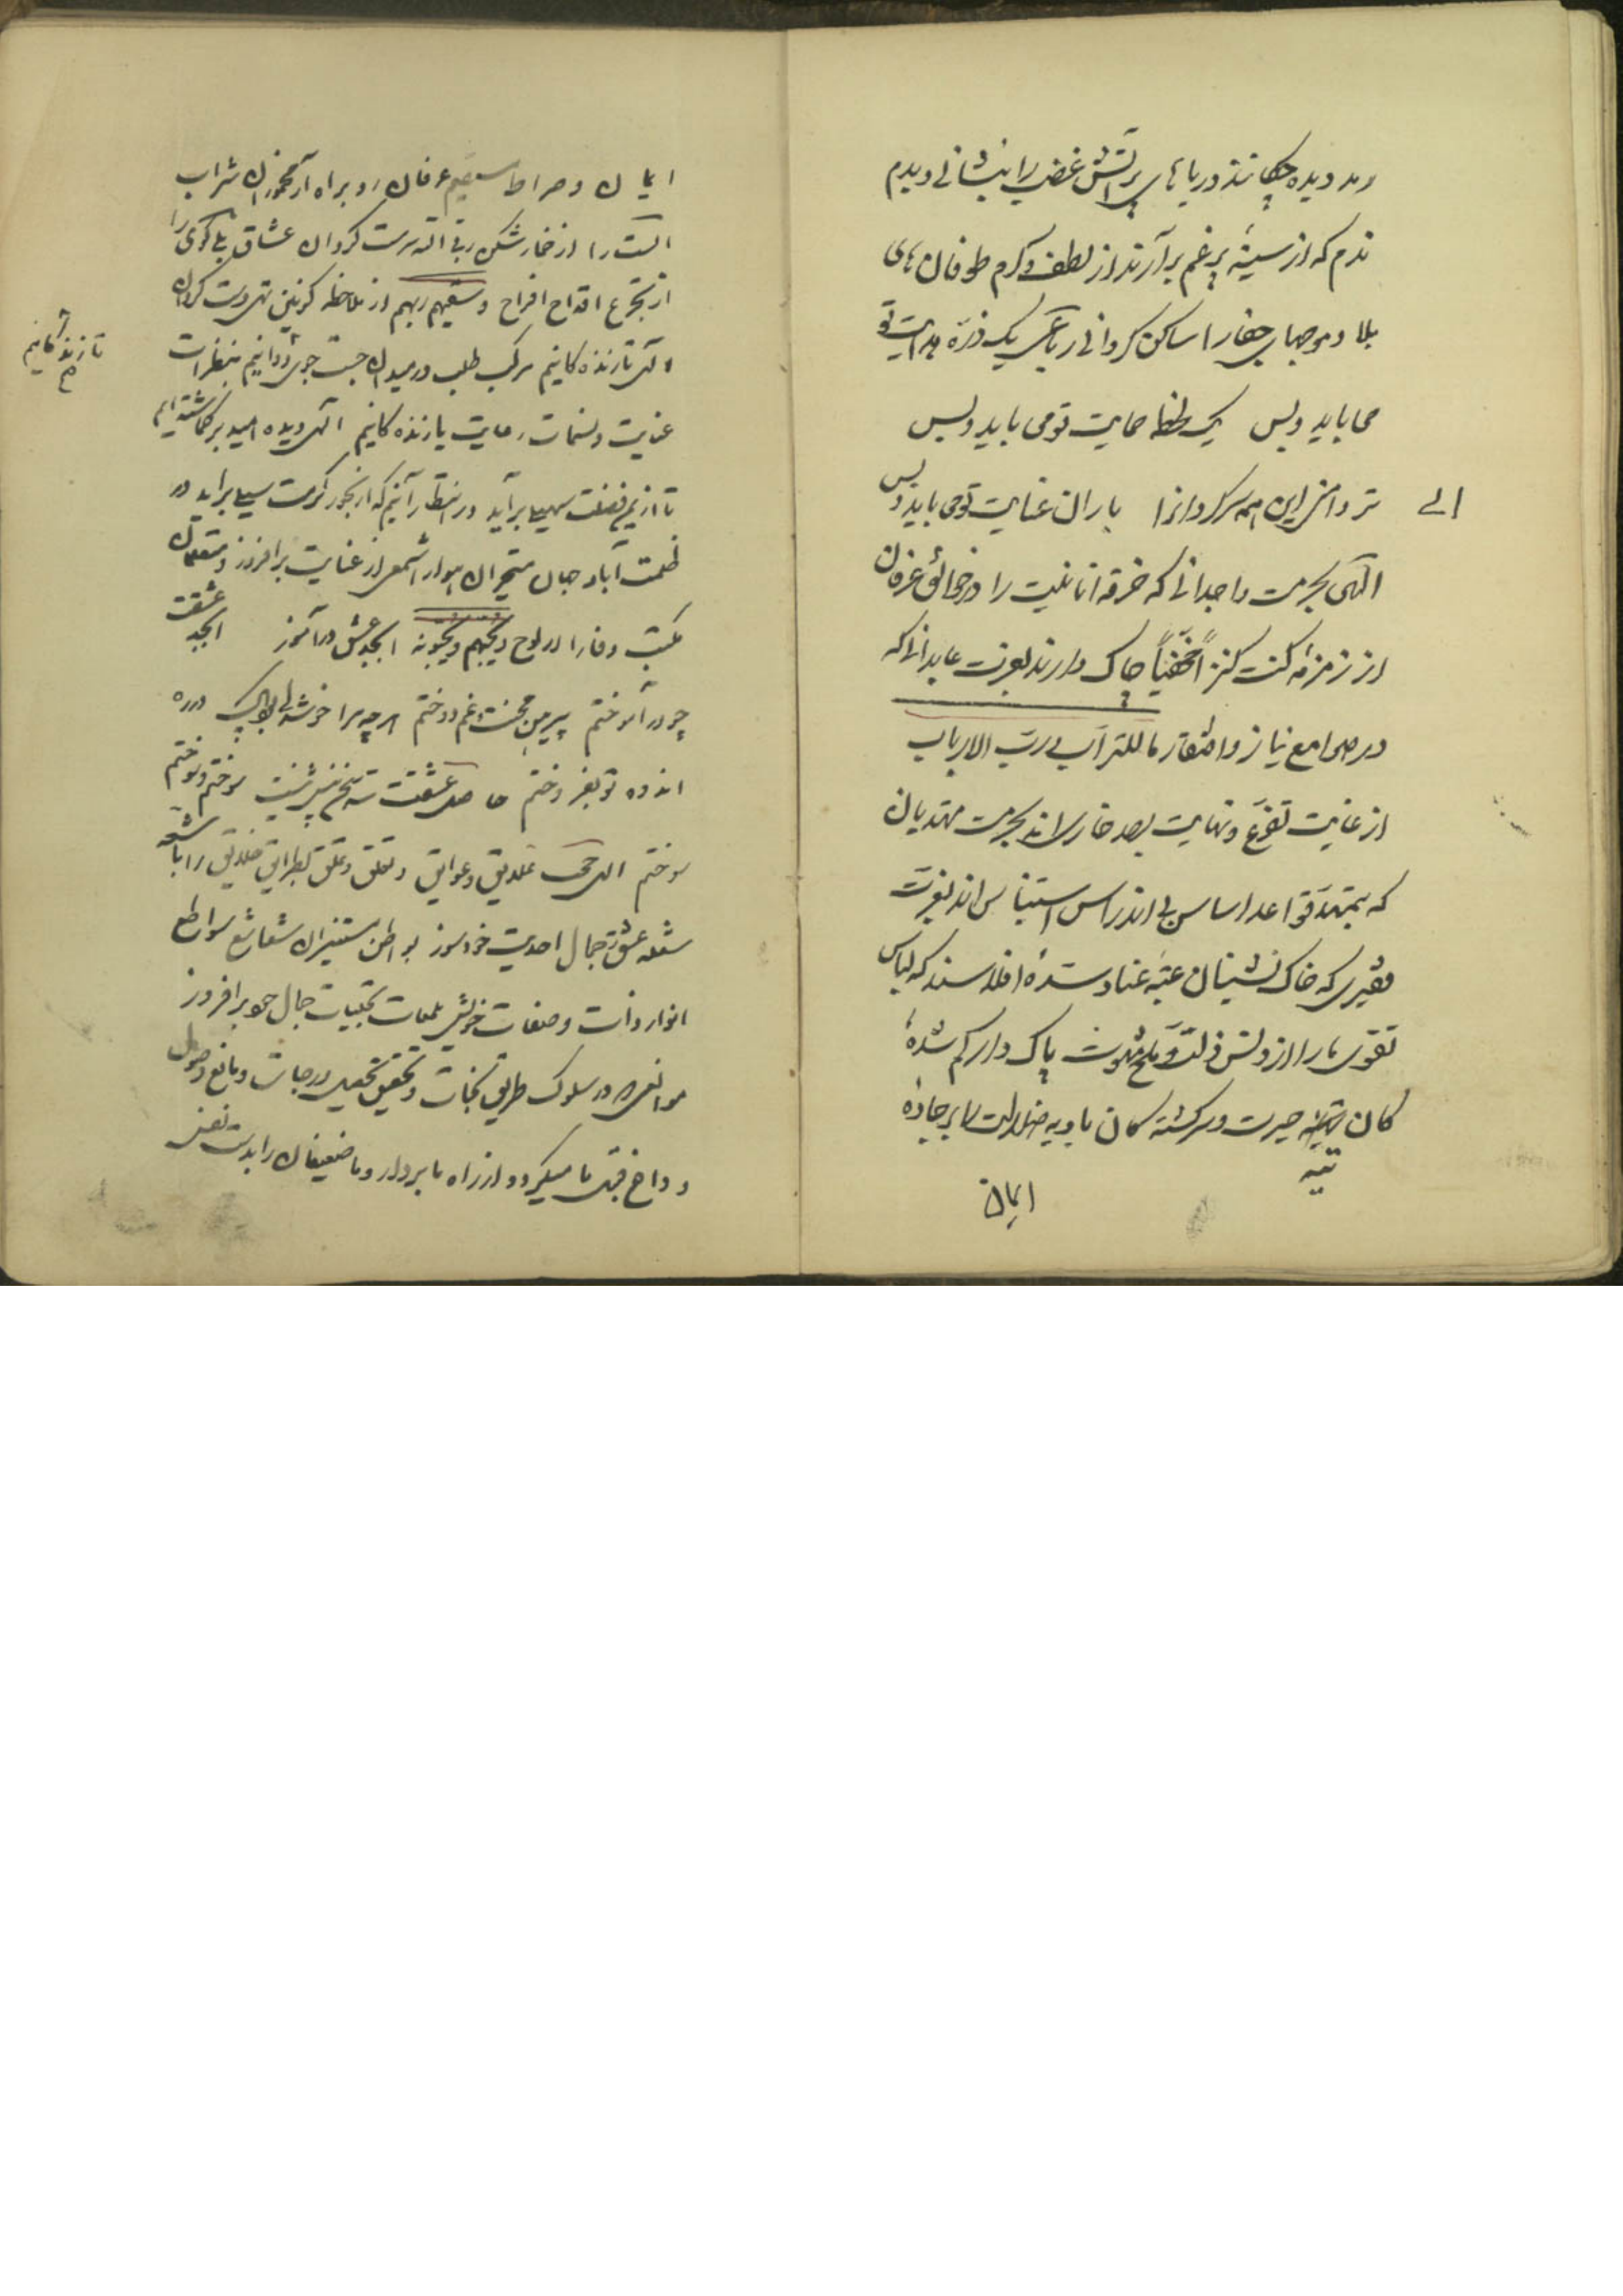 و مد دیده چکانند دریاهای پر آتش غضب را بنشانی و بدم
ندم که از سینهٔ پر غم برآرند از لطف و کرم طوفان های
بلا و موجهای جفا را ساکن گردانی رباعی یک ذره هدایت تو
می باید و بس یک لحظه حمایت تو می باید و بس
تر دامنی این همه سرگردانرا باران عنایت تو می باید و بس
الهی بحرمت واجدانی که خرقه انانیت را در
از زمزمه کنت کنزاً مخفیاً چاک دارند بعزت عابدانی که
در صوامع نیاز و افتقار ما للتراب و رب الارباب
از غایت تضرع و نهایت بحرمت مهتدیان
که بتمهد قواعد اساس بی اندراس استیناس اند بعزت
فقیری که خاک نشینان عتبه غنا و سدهٔ افلاسند که لباس
تقوی ما را از دنس ذلت و پاک دار گم شده
کان تیه حیرت و سرگشته کان بادیه ضلالت را بر جاده
تیه
ایمان
ایمان و صراط مستقیم عرفان رو براه آر مخموران شراب
الست را از خمار شکن سرمست گردان عشاق را
از تجرع اقداح افراح و سقیهم ربهم از ملاحظه کونین تهی دست گردان
الهی تا زنده کانیم مرکب طلب در میدان جست جوی تو دوانیم بنظرات
تا زنده کانیم
عنایت و نسمات رعایت یا زنده کانیم الهی دیده امید بر گماشته ایم
تا از یم فضلت برآید در انتظار آنیم که از بحور کرمت برآید در
ظلمت آباد جهان متحیران شمعی از عنایت برافروز و متعلمان
مکتب وفا را در لوح و یحبهم و یحبونه ابجد عشق درآموز ابجد عشقت
چو درآموختم پیرهن محنت و غم دوختم هر چه مرا خوشه
اندوه تو بفروختم حاصل عشقت سه سخن بیش نیست سوختم و سوختم
سوختم الهی علایق و عوایق و تعلق و تملق خلایق را بآتش
شعله عشق جمال احدیت خود سوز بواطن مستنیران شعاشع سواطع
انوار ذات و صفات خویش بلمعات تجلیات جمال خود برافروز
موانعی که در سلوک طریق نجات و تحقیق تحصیل درجات و مانع وصول
ما میگردد از راه ما بردار و ما ضعیفان را بدست نفس